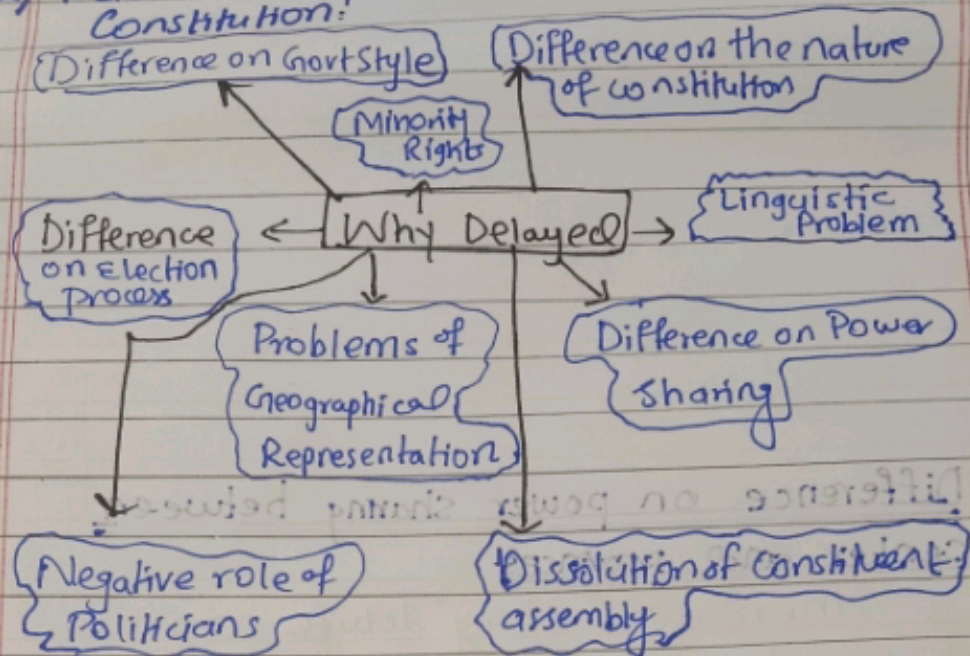 Constitution:
Difference on Govt Style
Difference on the nature
of constitution
Minority
Rights
Why Delayed
Linguistic
Problem
Difference
on Election
Process
Problems of
Geographical
Representation
Difference on Power
Sharing
Negative role of
Politicians
Dissolution of Constituent
assembly
Difference on power sharing between